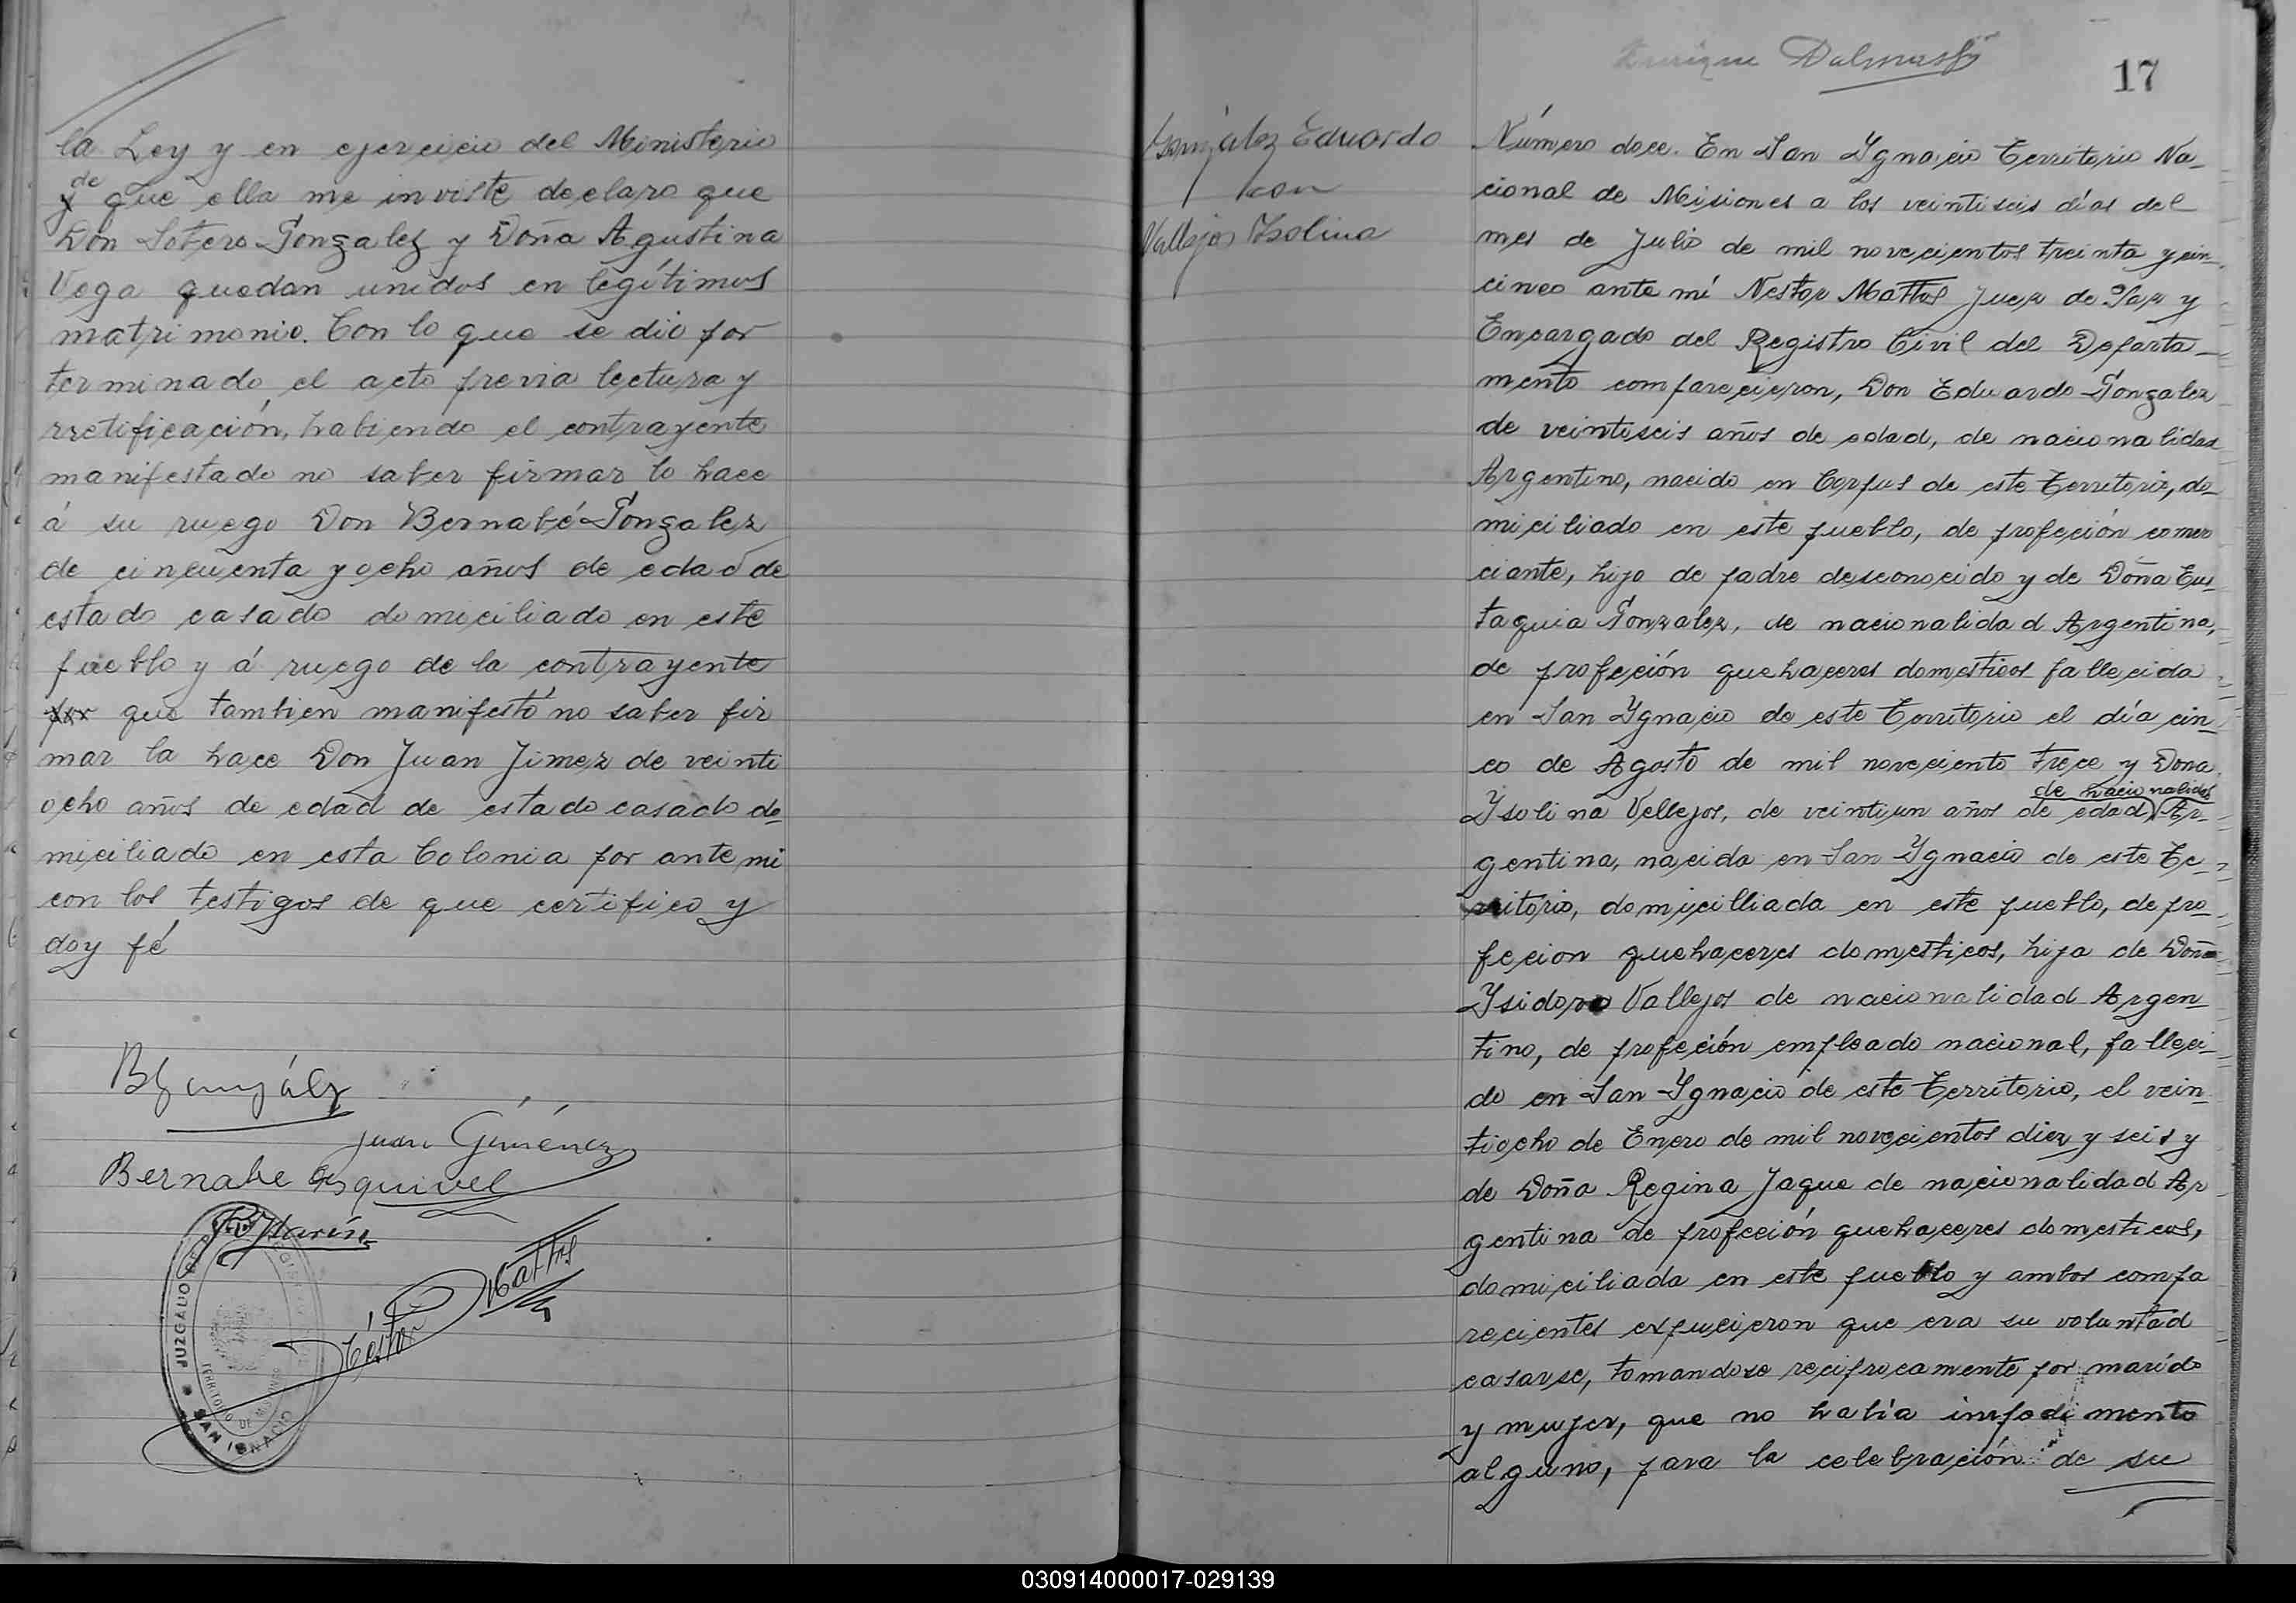 la Ley y en ejercicio del Ministerio
de
y que ella me inviste declaro que
Don Sotero Gonzalez y Doña Agustina
Vega quedan unidos en legítimos
matrimonio. Con lo que se dió por
terminado el acto previa lectura y
rretificación, habiendo el contrayente
manifestado no saber firmar lo hace
á su ruego Don Bernabé Gonzalez
de cincuenta y ocho años de edad de
estado casado domiciliado en este
pueblo y á ruego de la contrayente
por que tambien manifestó no saber fir
mar la hace Don Juan Jimez de veinti
ocho años de edad de estado casado do
miciliado en esta Colonia por ante mi
con los testigos de que certifico y
doy fé
B Gonzálz
Juan Giménez
Bernabe Esquivel
Néstor Mattos
JUZGADO DE
TERRITORIO DE MISIONES
SAN IGNACIO
Enrique Dalmasso
17
González Eduardo
con
Vallejos Isolina
Número doce. En San Ygnacio Territorio Na-
cional de Misiones a los veintiseis días del
mes de Julio de mil novecientos treinta y cin-
cinco ante mí Nestor Mattos Juez de Paz y
Encargado del Registro Civil del Departa-
mento comparecieron, Don Eduardo Gonzalez
de veintiseis años de edad, de nacionalidad
Argentino, nacido en Corpus de este Territorio, do-
miciliado en este pueblo, de profeción comer
ciante, hijo de padre desconocido y de Doña Eus-
taquia Gonzalez, de nacionalidad Argentina,
de profeción quehaceres domesticos fallecida
en San Ygnacio de este Territorio el día cin-
co de Agosto de mil noveciento trece y Dona
de nacionalidad
Ysolina Vellejos, de veintiun años de edad, Ar-
gentina, nacida en San Ygnacio de este Te-
rritorio, domicilliada en este pueblo, de pro-
feción quehaceres domesticos, hija de Doña
Ysidoro Vallejos de nacionalidad Argen-
tino, de profeción empleado nacional, falleci-
do en San Ygnacio de este Territorio, el vein-
tiocho de Enero de mil novecientos diez y seis y
de Doña Regina Jaque de nacionalidad Ar
gentina de profeción quehaceres domesticos,
domiciliada en este pueblo y ambos compa
recientes expucieron que era su voluntad
casarse, tomandose recíprocamente por marido
y mujer, que no había impedimento
alguno, para la celebración de su
030914000017-029139